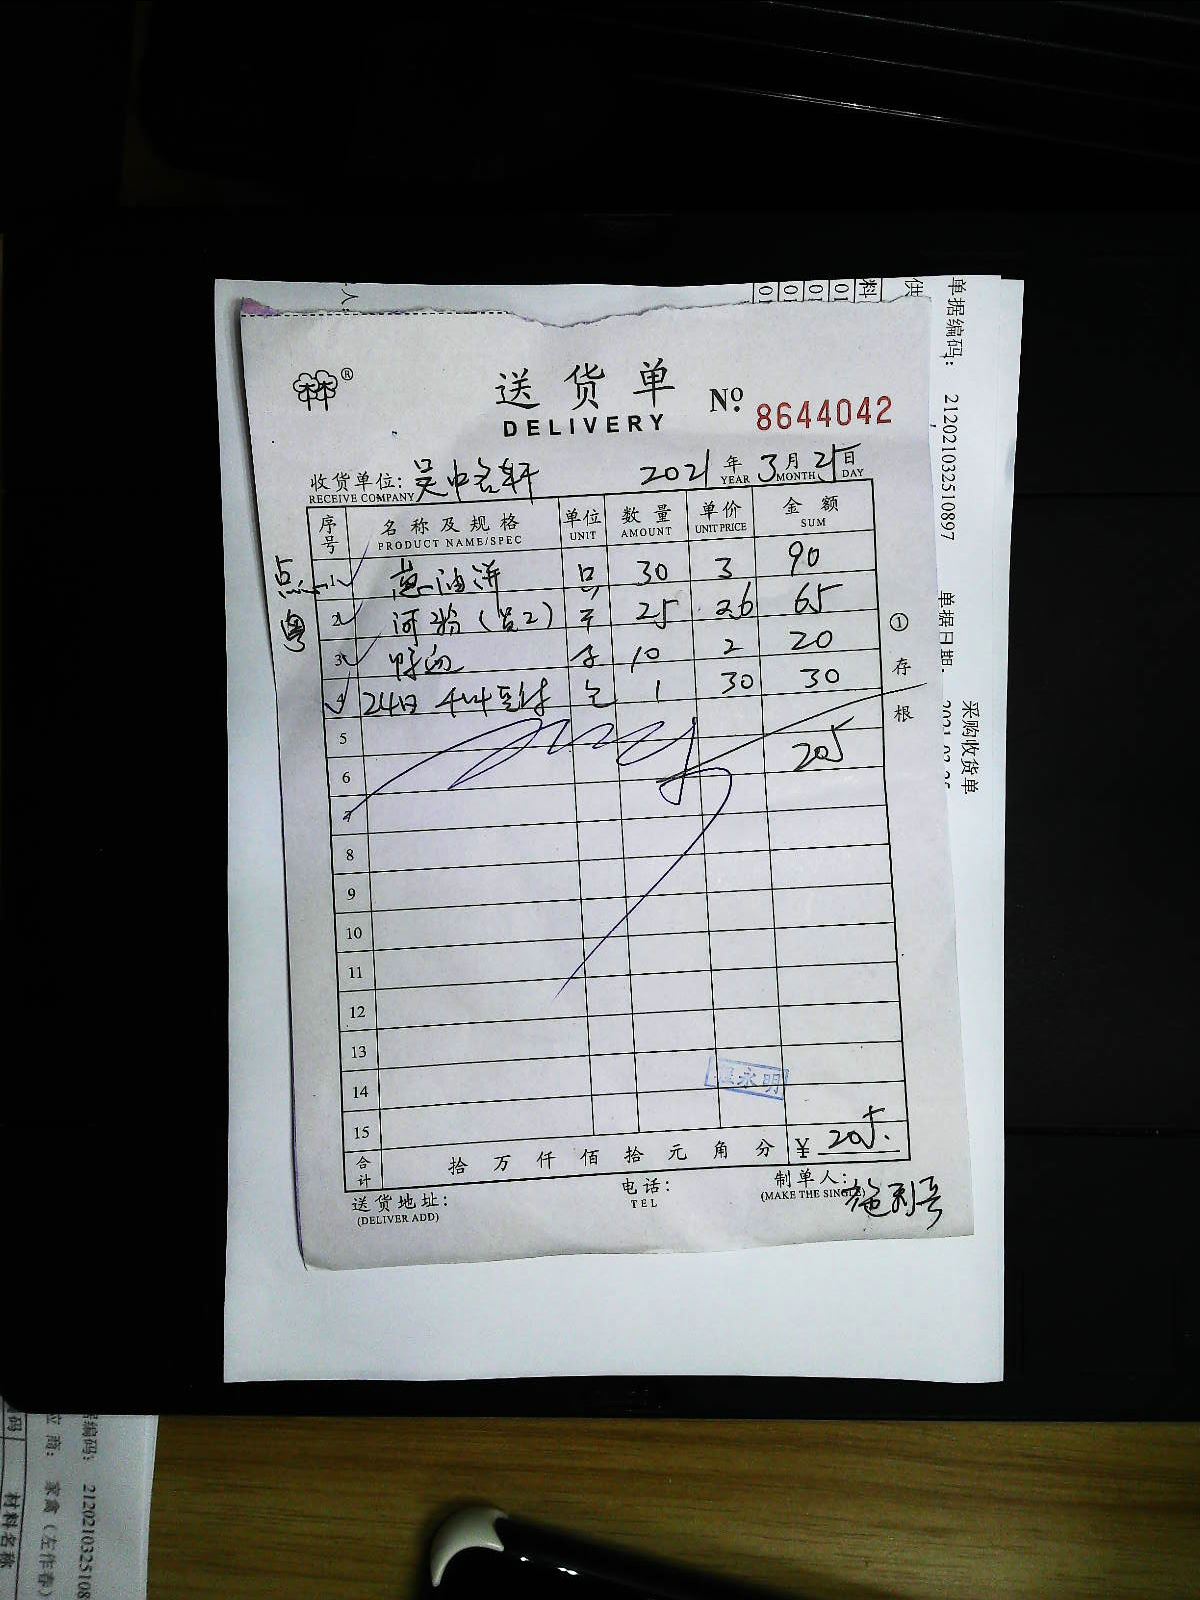 送货单
DELIVERY
№ 8644042
收货单位: 吴中名轩
RECEIVE COMPANY
2021 年 3 月 25 日
YEAR MONTH DAY
序号 名称及规格 单位 数量 单价 金额
PRODUCT NAME/SPEC UNIT AMOUNT UNIT PRICE SUM
点
粤
1 葱油饼 只 30 3 90
2 河粉 25 2.6 65
3 鸭血 10 2 20
4 24日 包 1 30 30
5
205
6
7
8
9
10
11
12
13
永明
14
15
合计 拾 万 仟 佰 拾 元 角 分 ¥ 205.
送货地址: 电话: 制单人:
(DELIVER ADD) TEL (MAKE THE SINGLE)
①存根
供
料
01
01
01
01
人
单据编码: 212021032510897
单据日期:
采购收货单
据编码: 2120210325108
应商: 家禽(左作春)
材料名称
码